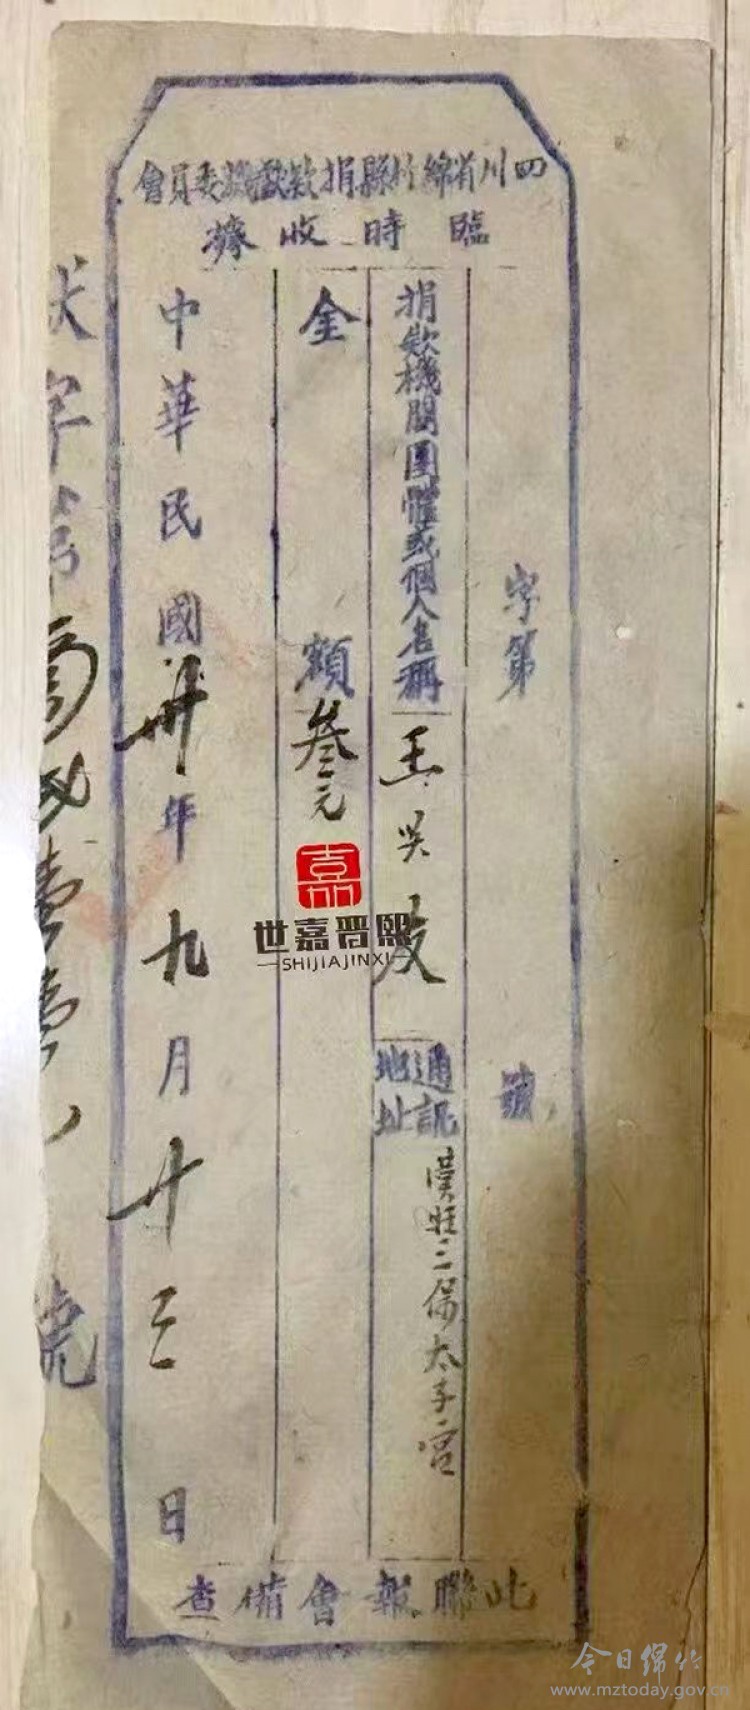 四川省綿竹縣捐款獻機委員會
臨時收據
字第 號
捐款機關團體或個人名稱 王吳友
通訊地址 漢旺三保太子宮
金額 叁元
中華民國卅年九月廿三日
字第 壹壹 號
此聯報會備查
嘉
世嘉晋熙
SHIJIAJINXI
今日绵竹
www.mztoday.gov.cn